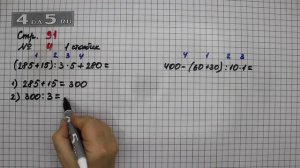 4DA5.RU
Стр. 91
№ 4 1 столбик
1 2 3 4
(285+15):3·5+280=
1) 285+15=300
2) 300:3=
4 1 2 3
400-(60+30):10·1=